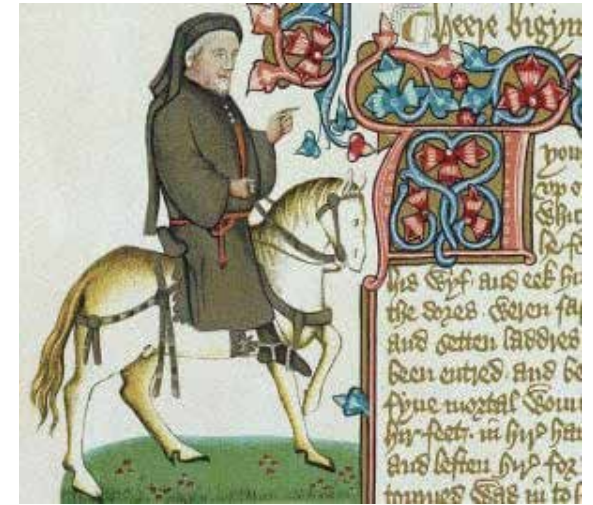 heere bigyn
A you
vp o
Whic
he fo
his wyf· and eek hi
the dores weren fas
and setten laddres
been entred. and be
fyue mortal woun
hir feet. in hir han
and leften hir for
tourned was in to h